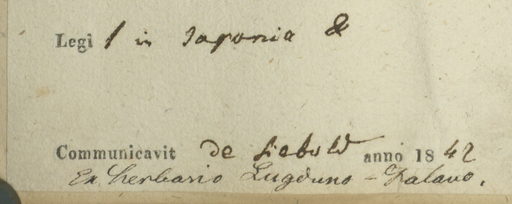 Legi / in Japonia &
Communicavit de Siebold anno 1842
Ex herbario Lugduno-Batavo.